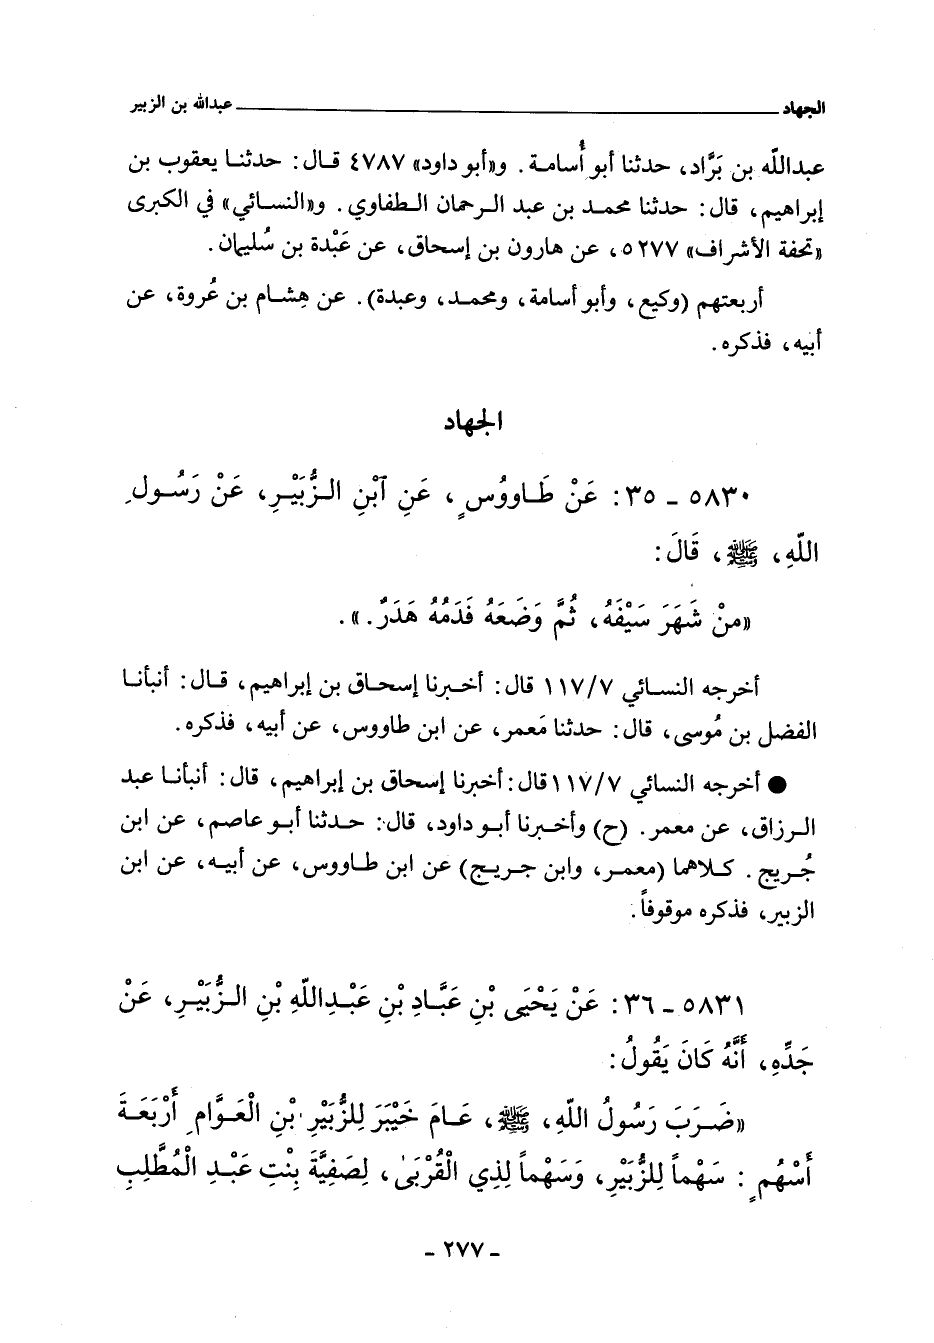 الجهاد ــــــــــــــــــــ عبدالله بن الزبير
عبداللّه بن بَرَّاد، حدثنا أبو أُسامة. و«أبو داود» ٤٧٨٧ قال: حدثنا يعقوب بن
إبراهيم، قال: حدثنا محمد بن عبد الرحمان الطفاوي. و«النسائي» في الكبرى
«تحفة الأشراف» ٥٢٧٧، عن هارون بن إسحاق، عن عَبْدة بن سُليمان.
أربعتهم (وكيع، وأبو أسامة، ومحمد، وعبدة). عن هِشام بن عُروة، عن
أبيه، فذكره.
الجهاد
٥٨٣٠ - ٣٥: عَنْ طَاووُسٍ، عَنِ آبْنِ الزُّبَيْرِ، عَنْ رَسُولِ
اللّهِ، ﷺ، قَالَ:
«مَنْ شَهَرَ سَيْفَهُ، ثُمَّ وَضَعَهُ فَدَمُهُ هَدَرٌ.».
أخرجه النسائي ١١٧/٧ قال: أخبرنا إسحاق بن إبراهيم، قال: أنبأنا
الفضل بن مُوسى، قال: حدثنا مَعمر، عن ابن طاووس، عن أبيه، فذكره.
● أخرجه النسائي ١١٧/٧ قال: أخبرنا إسحاق بن إبراهيم، قال: أنبأنا عبد
الرزاق، عن معمر. (ح) وأخبرنا أبو داود، قال: حدثنا أبو عاصم، عن ابن
جُريج. كلاهما (معمر، وابن جريج) عن ابن طاووس، عن أبيه، عن ابن
الزبير، فذكره موقوفاً.
٥٨٣١ - ٣٦: عَنْ يَحْيَى بْنِ عَبَّادِ بْنِ عَبْدِاللّهِ بْنِ الزُّبَيْرِ، عَنْ
جَدِّهِ، أَنَّهُ كَانَ يَقُولُ:
«ضَرَبَ رَسُولُ اللّهِ، ﷺ، عَامَ خَيْبَرَ لِلزُّبَيْرِ بْنِ الْعَوَّامِ أَرْبَعَةَ
أَسْهُمٍ: سَهْماً لِلزُّبَيْرِ، وَسَهْماً لِذِي الْقُرْبَىٰ، لِصَفِيَّةَ بِنْتِ عَبْدِ الْمُطَّلِبِ
- ٢٧٧ -